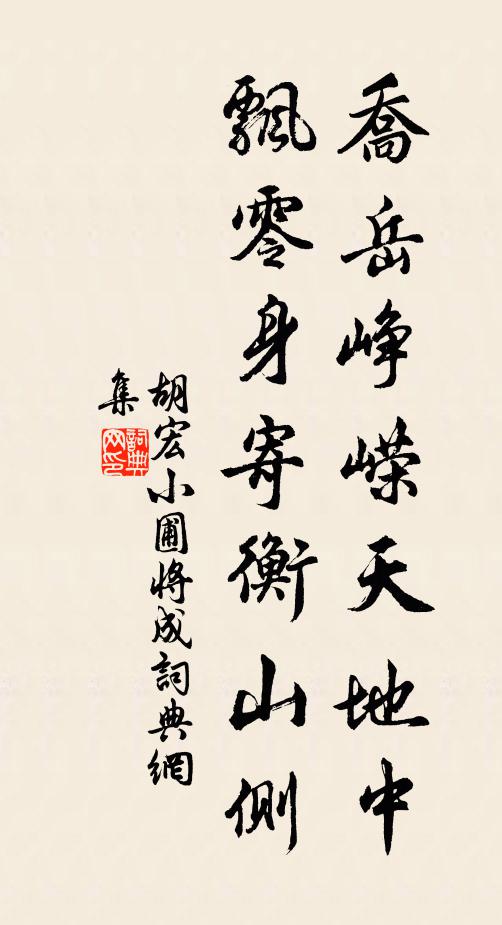 喬岳崢嶸天地中
飄零身寄衡山側
胡宏小圃將成詞典網
集
詞典网印